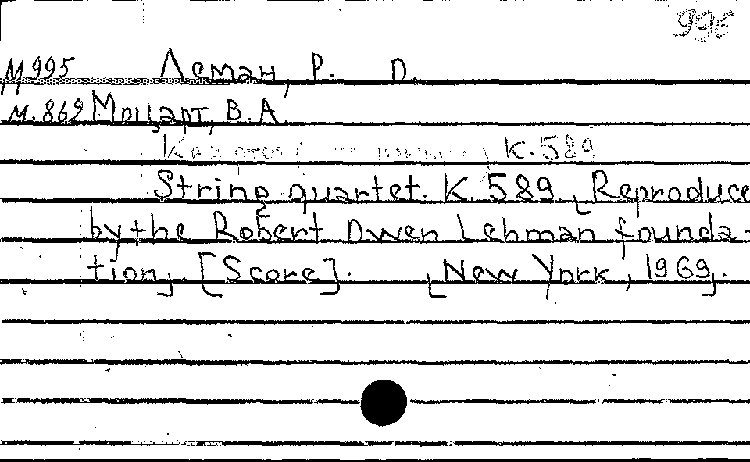 996
М 995 Леман, Р. О.
М. 869 Моцарт, В. А.
К. 589
String quartet. K. 589. [Reproduce
by the Robert Owen Lehman founda-
tion]. [Score]. [New York, 1969].